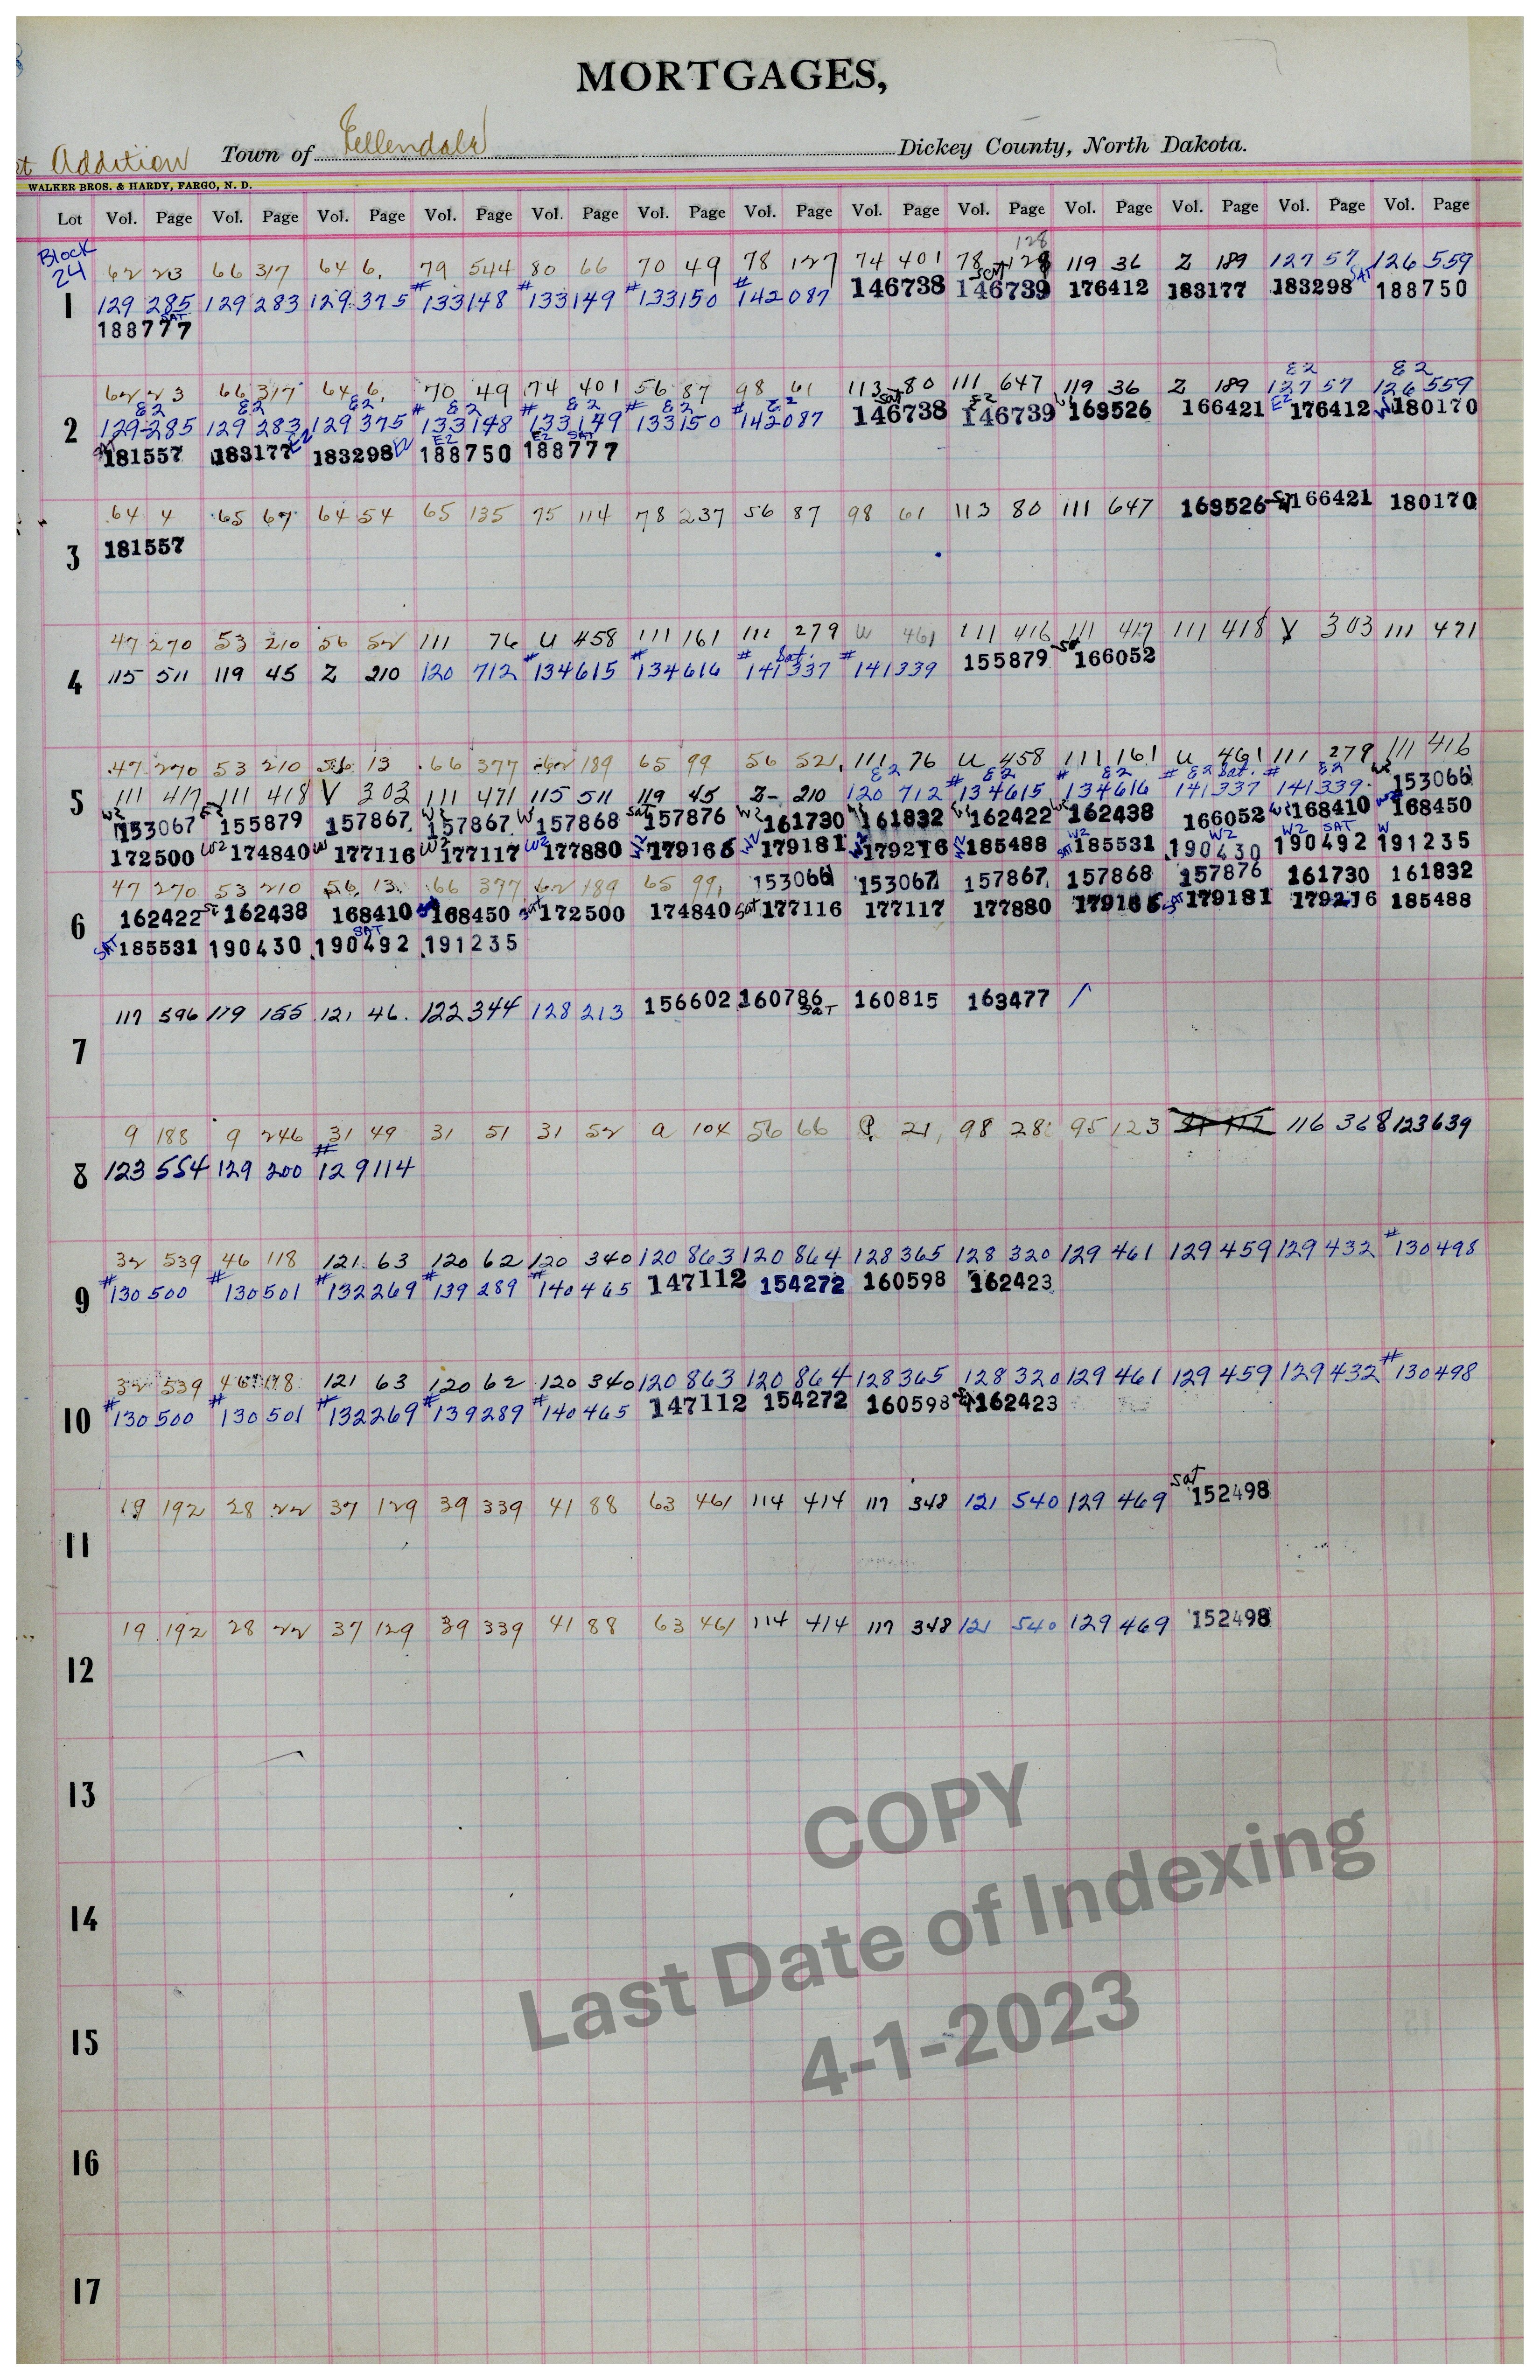 MORTGAGES,
Addition Town of Ellendale Dickey County, North Dakota.
WALKER BROS. & HARDY, FARGO, N. D.
Lot Vol. Page Vol. Page Vol. Page Vol. Page Vol. Page Vol. Page Vol. Page Vol. Page Vol. Page Vol. Page Vol. Page Vol. Page Vol. Page
Block 24
128
62 23 66 317 64 6. 79 544 80 66 70 49 78 127 74 401 78 119 36 Z 189 127 57 126 559
1 129 285 129 283 129 375 #133148 #133149 #133150 #142087 146738 SAT 146739 176412 183177 183298 SAT 188750
SAT
188777
E2 E2
62 23 66 317 64 6. 70 49 74 401 56 87 98 61 113 80 111 647 119 36 Z 189 127 57 126 559
E2 E2 E2 E2 E2 E2 E2 Sat E2
2 129 285 129 283 129 375 #133148 #133149 #133150 #142087 146738 146739 163526 166421 E2 176412 180170
E2 E2 SAT
181557 183177 E2 183298 188750 188777
64 4 65 67 64 54 65 135 75 114 78 237 56 87 98 61 113 80 111 647 163526 166421 180170
3 181557
47 270 53 210 56 52 111 76 U 458 111 161 111 279 U 461 111 416 111 417 111 418 V 303 111 471
4 115 511 119 45 Z 210 120 712 #134615 #134616 #141337 Sat. #141339 155879 166052
47 270 53 210 56 13 66 377 62 189 65 99 56 521 111 76 U 458 111 161 U 461 111 279 111 416
E2 E2 E2 E2 Sat. E2
5 111 417 111 418 V 303 111 471 115 511 119 45 Z 210 120 712 #134615 #134616 #141337 #141339 153066
W2 153067 155879 157867 W2 157867 W 157868 Sat 157876 W2 161730 161832 162422 W2 162438 166052 W2 168410 W2 168450
172500 W2 174840 W 177116 W2 177117 W2 177880 W2 179165 179181 179216 185488 W2 SAT 185531 W2 190430 W2 SAT 190492 W 191235
47 270 53 210 56 13. 66 377 62 189 65 99, 153066 153067 157867 157868 157876 161730 161832
6 162422 162438 168410 168450 Sat 172500 174840 Sat 177116 177117 177880 179165 179181 179216 185488
SAT 185531 190430 SAT 190492 191235
117 596 119 155 121 46. 122 344 128 213 156602 160786 Sat 160815 163477
7
9 188 9 246 31 49 31 51 31 52 a 104 56 66 21, 98 28 95 123 116 368 123 639
8 123 554 129 200 #129114
32 539 46 118 121 63 120 62 120 340 120 863 120 864 128 365 128 320 129 461 129 459 129 432 #130498
9 #130500 #130501 #132269 #139289 #140465 147112 154272 160598 162423
32 539 46 118 121 63 120 62 120 340 120 863 120 864 128 365 128 320 129 461 129 459 129 432 #130498
10 #130500 #130501 #132269 #139289 #140465 147112 154272 160598 162423
19 192 28 22 37 129 39 339 41 88 63 461 114 414 117 348 121 540 129 469 Sat 152498
11
19 192 28 22 37 129 39 339 41 88 63 461 114 414 117 348 121 540 129 469 152498
12
13
14
15
16
17
COPY
Last Date of Indexing
4-1-2023